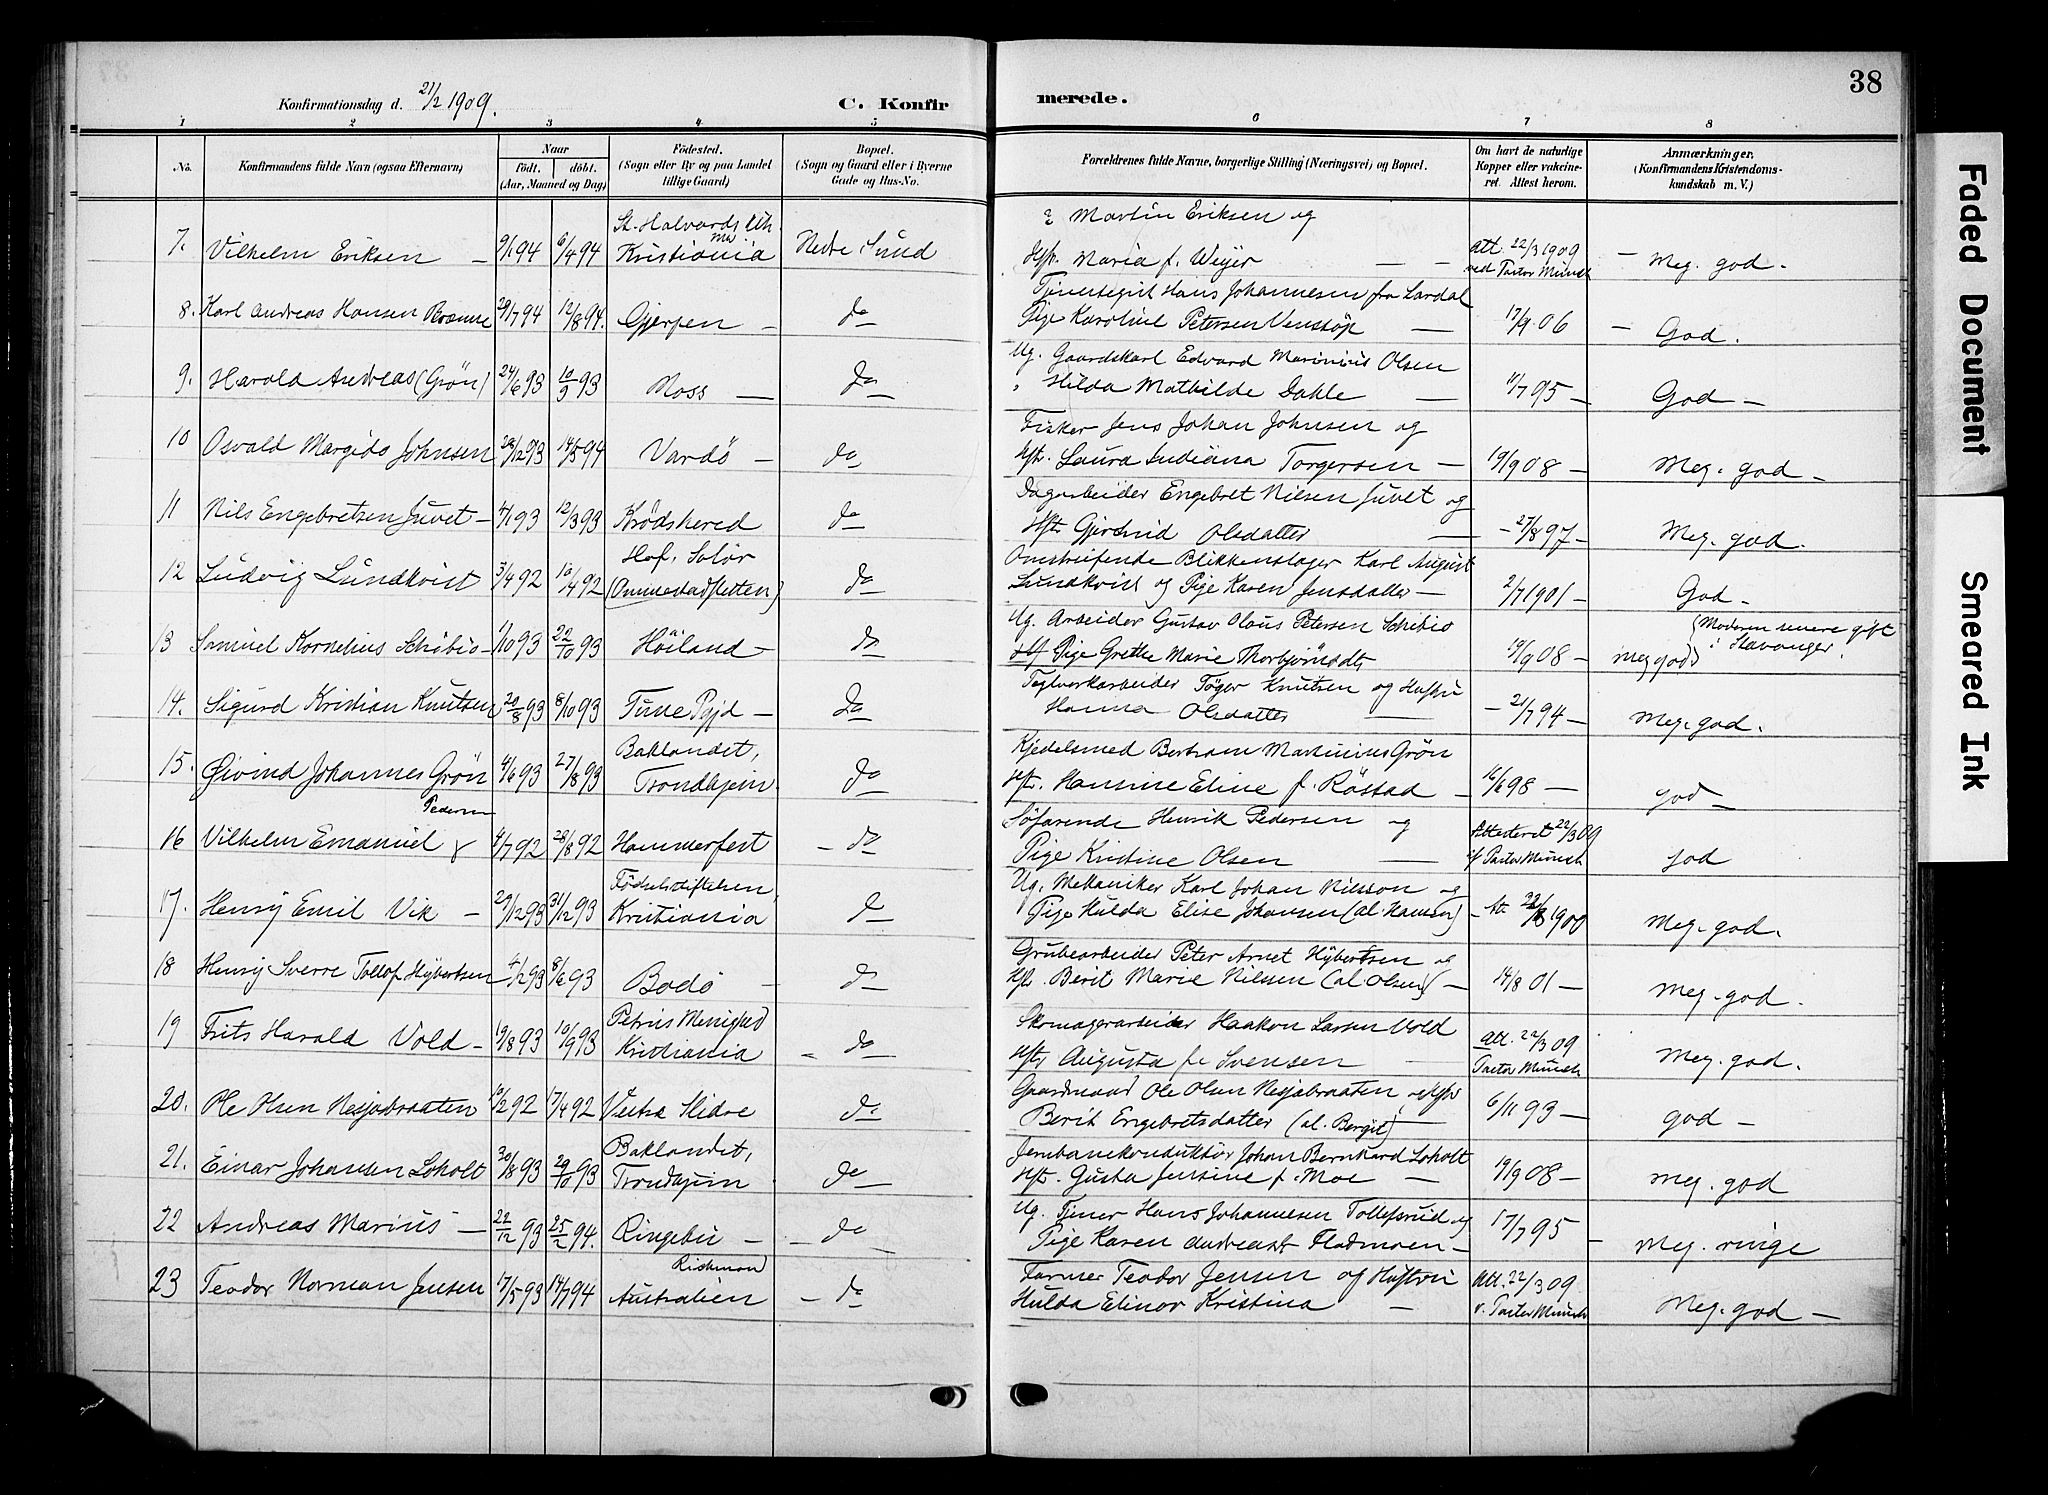 38
Konfirmationsdag d. 21/2 1909.
C. Konfirmerede.
1 2 3 4 5 6 7 8
No.
Konfirmandens fulde Navn (ogsaa Efternavn)
Naar
födt. döbt.
(Aar, Maaned og Dag)
Födested.
(Sogn eller By og paa Landet
tillige Gaard)
Bopæl.
(Sogn og Gaard eller i Byerne
Gade og Hus-No.
Forældrenes fulde Navne, borgerlige Stilling (Næringsvei) og Bopæl.
Om havt de naturlige
Kopper eller vakcine-
ret. Attest herom.
Anmærkninger.
(Konfirmandens Kristendoms-
kundskab m. V.)
7. Vilhelm Eriksen — 9/1 94 6/4 94 St. Halvards Kristiania Nedre Sund
Martin Eriksen og
Hstr. Maria f. Weyer — — Att. 22/3 1909 ved Pastor Münch — Meg. god.
8. Karl Andreas Hansen 29/7 94 12/8 94. Gjerpen — do
Hans Johannesen fra Lardal
Pige Karoline Petersen Venstöp — 17/9 06 — God.
9. Harald Andreas (Grön) 24/6 93 10/9 93 Moss — do
Ug. Gaardskarl Edvard Marinius Olsen
" Hilda Mathilde Dahle — 11/7 95 — God —
10 Osvald Margido Johnsen 28/12 93 14/5 94 Vardö — do
Fisker Jens Johan Johnsen og
Hstr. Laura Indiana Torgersen — 19/9 08 — Meg. god —
11 Nils Engebretsen Juvet — 4/1 93 12/3 93 Krödshered do
Dagarbeider Engebret Nilsen Juvet og
Hstr Gjertrud Olsdatter — — 27/8 97 — Meg. god.
12 Ludvig Lundkvist 3/4 92 10/4 92 Hof, Solör do
Omstreifende Blikkenslager Karl August
Lundkvist og Pige Karen Jensdatter — 2/7 1901 — God —
13 Samuel Kornelius Schibio — 1/10 93 22/10 93 Höiland — do
Ug. Arbeider Gustav Olaus Petersen Schibio
Pige Grethe Marie Thorbjörnsdtr 19/9 08 — meg god (Moderen senere gift i Stavanger.
14. Sigurd Kristian Knutsen 20/8 93 8/10 93 Tune Pgjd — do
Teglverkarbeider Töger Knutsen og Hustru
Hanna Olsdatter — — 21/7 94 — Meg. god.
15. Øivind Johannes Grön 4/6 93 27/8 93 Baklandet, Trondhjem do
Kjedelsmed Bertram Martinius Grön
Hstr. Hansine Eline f. Röstad — 16/6 98 — god —
16 Vilhelm Emanuel Pedersen 4/7 92 28/8 92 Hammerfest — do
Söfarende Henrik Pedersen og
Pige Kristine Olsen — Attesteret 22/3 09 Pastor Münch god
17. Henry Emil Vik — 29/12 93 31/12 93 Födselsstiftelsen, Kristiania do
Ug. Mekaniker Karl Johan Nilsson og
Pige Hulda Elise Johansen (al. Hansen) — Att. 22/8 1900 Meg. god.
18 Henry Sverre Tollof Hybertsen 4/2 93 8/6 93 Bodö — do
Grubearbeider Peter Arnet Hybertsen og
Hstr. Berit Marie Nilsen (al Olsen) — 14/8 01 — Meg. god.
19 Frits Harald Vold — 19/8 93 10/9 93 Petrus Menighed Kristiania — do
Skomagerarbeider Haakon Larsen Vold
Hstr Augusta f. Svensen — Att. 22/3 09 Pastor Münch Meg. god.
20. Ole Olsen Nesjabraaten 10/2 92 17/4 92 Vestre Slidre do
Gaardmand Ole Olsen Nesjabraaten, Hstr
Berit Engebretsdatter (al. Bergit) — 6/11 93 — god —
21. Einar Johansen Loholt 30/8 93 29/10 93 Baklandet, Trondhjem do
Jernbanekonduktör Johan Bernhard Loholt
Hstr. Gusta Jensine f. Moe — 19/9 08 — meg. god
22 Andreas Marius — 22/12 93 25/2 94. Ringebu — — do
Ug. Tjener Hans Johannesen Tollefsrud og
Pige Karen Andreasdt. Fladmoen — 17/7 95 — Meg. ringe
23 Teodor Norman Jensen 17/5 93 14/7 94 Richmond Australien — do
Farmer Teodor Jensen og Hustru
Hulda Elinor Kristina — Att. 22/3 09 v. Pastor Münch Meg. god —
Faded Document
Smeared Ink